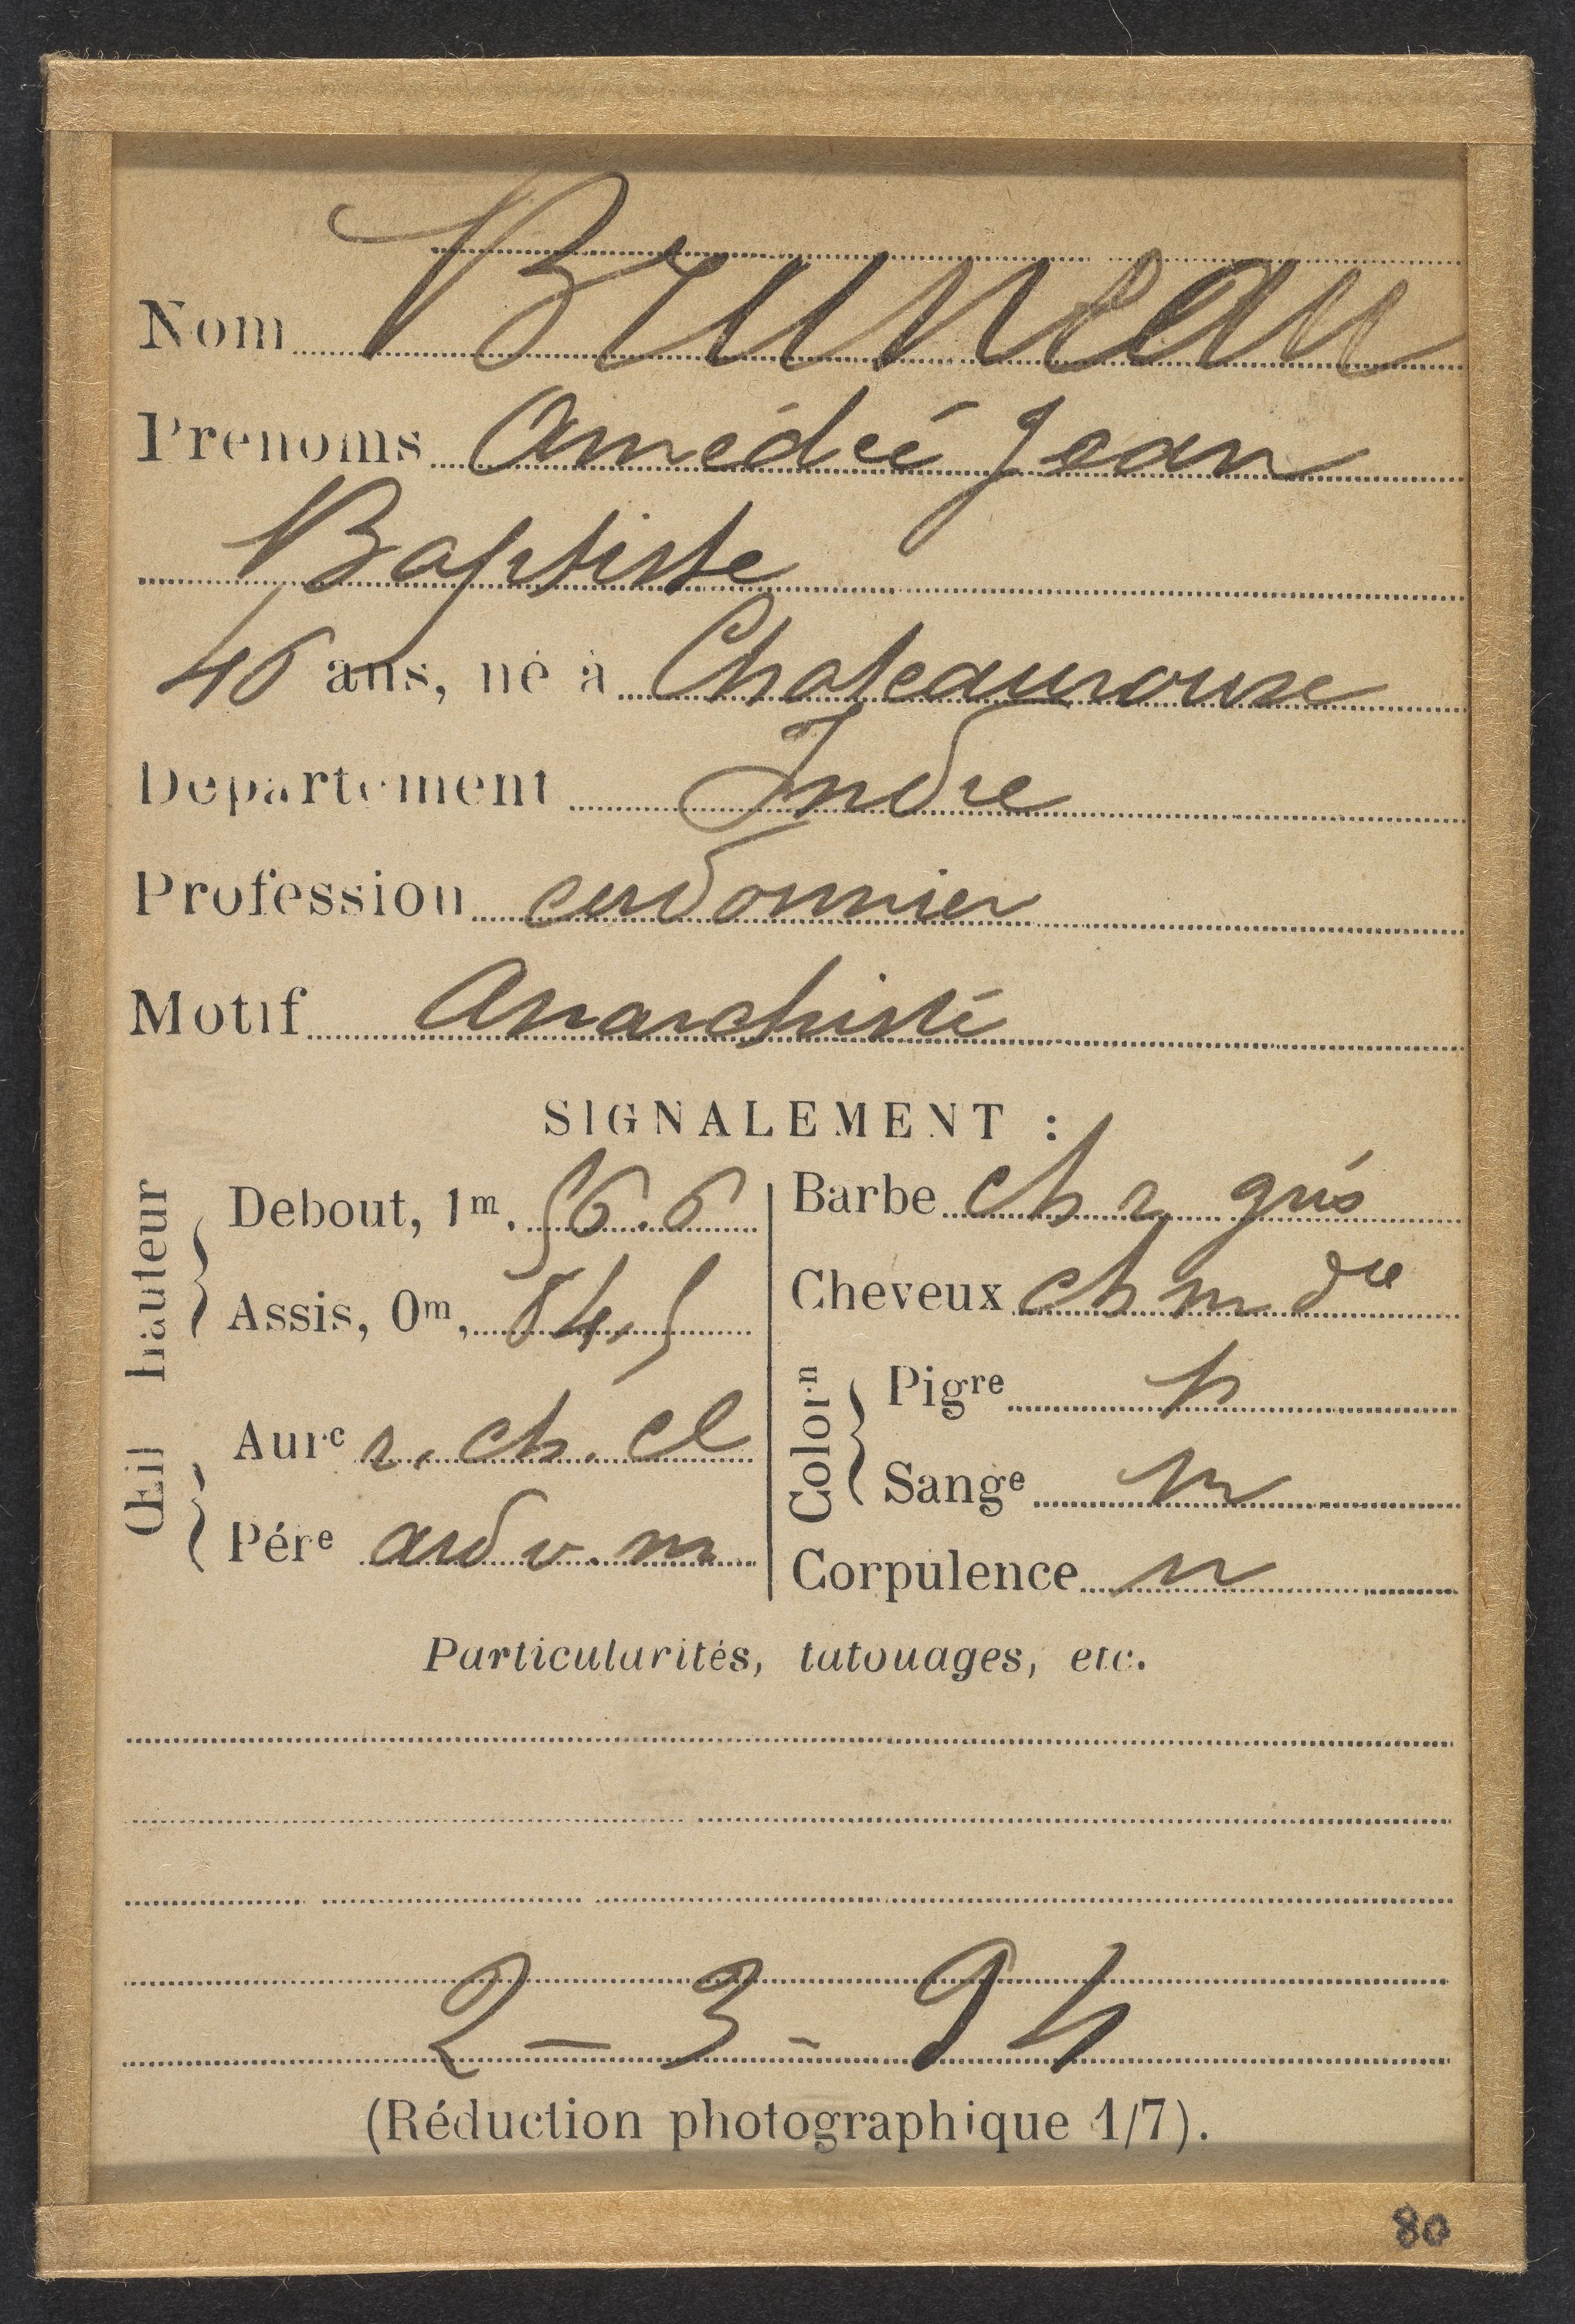 Nom Bruneau
Prénoms Amédée Jean
Baptiste
46 ans, né à Chateauroux
Département Indre
Profession cordonnier
Motif Anarchiste
SIGNALEMENT :
Œil hauteur
Debout, 1m, 56.6
Assis, 0m, 84,5
Aure r. ch. cl
Pére ard v. m
Barbe ch r. gris
Cheveux ch m d
Colorn
Pigre p
Sange m
Corpulence
Particularités, tatouages, etc.
2 - 3 - 94
(Réduction photographique 1/7).
80